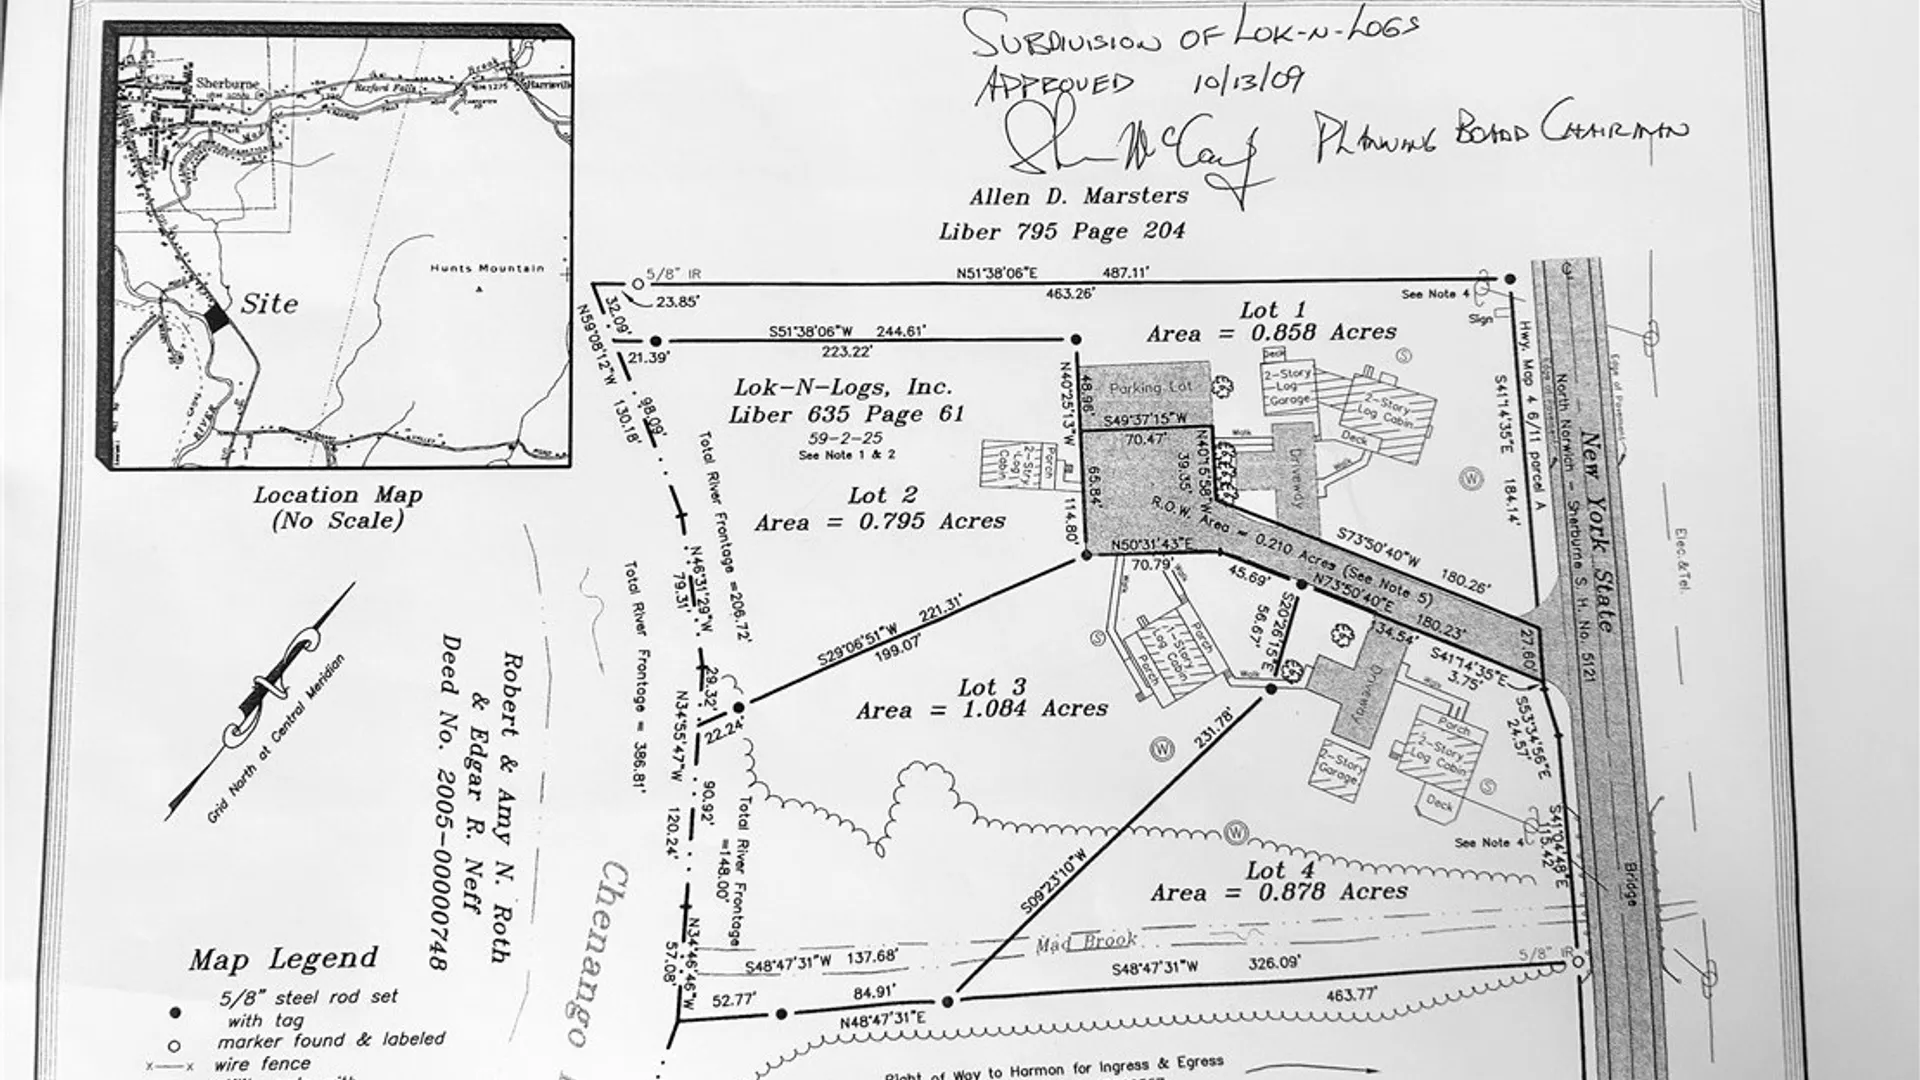 SUBDIVISION OF LOK-N-LOGS
APPROVED 10/13/09
PLANNING BOARD CHAIRMAN
Allen D. Marsters
Liber 795 Page 204
Sherburne
Rexford Falls
Hunts Mountain
Site
RIVER
Location Map
(No Scale)
Grid North at Central Meridian
Robert & Amy N. Roth
& Edgar R. Neff
Deed No. 2005-00000748
Map Legend
5/8" steel rod set
with tag
marker found & labeled
x x wire fence
5/8" IR
N51°38'06"E 487.11'
463.26'
23.85'
32.09'
N59°08'12"W 130.18'
S51°38'06"W 244.61'
223.22'
21.39'
98.09'
See Note 4
Sign
Lot 1
Area = 0.858 Acres
Lok-N-Logs, Inc.
Liber 635 Page 61
59-2-25
See Note 1 & 2
Lot 2
Area = 0.795 Acres
N40°25'13"W 114.80'
48.96'
65.84'
Parking Lot
S49°37'15"W
70.47'
N40°15'58"W
39.35'
Deck
2-Story
Log
Garage
2-Story
Log Cabin
Deck
Walk
Walk
Driveway
S
W
2-Story
Log
Cabin
Porch
R.O.W. Area = 0.210 Acres (See Note 5)
S73°50'40"W 180.26'
N50°31'43"E
70.79'
45.69'
N73°50'40"E 180.23'
134.54'
S20°26'15"E
56.67'
27.60'
S41°14'35"E
3.75'
S53°34'56"E
24.57'
Hwy. Map 4 6/11 parcel A
S41°14'35"E 184.14'
Edge of Pavement
North Norwich - Sherburne S. H. No. 5121
New York State
Edge of Pavement
Elec.&Tel.
Bridge
Total River Frontage =206.72'
Total River Frontage = 386.81'
N46°31'29"W
79.31'
29.32'
22.24'
S29°06'51"W 221.31'
199.07'
N34°55'47"W 120.24'
90.92'
Total River Frontage
=148.00'
N34°46'46"W
57.08'
Lot 3
Area = 1.084 Acres
Walk
Walk
S
1-Story
Log Cabin
Porch
Porch
Walk
Driveway
Walk
2-Story
Garage
Porch
2-Story
Log Cabin
Deck
S
W
231.78'
S09°23'10"W
W
See Note 4
S41°04'48"E
115.42'
Lot 4
Area = 0.878 Acres
Mad Brook
5/8" IR
S48°47'31"W 137.68'
S48°47'31"W 326.09'
52.77'
84.91'
463.77'
N48°47'31"E
Chenango
Right of Way to Harmon for Ingress & Egress